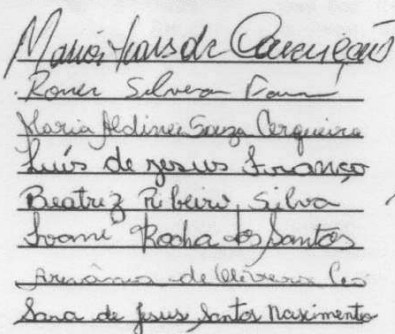 de Conceição
Roner Silveira
Maria Aldinei Souza Cerqueira
Luís de jesus França
Beatriz Ribeiro, Silva
Ivani Rocha dos Santos
de Oliveira
Sara de Jesus Santos Nascimento